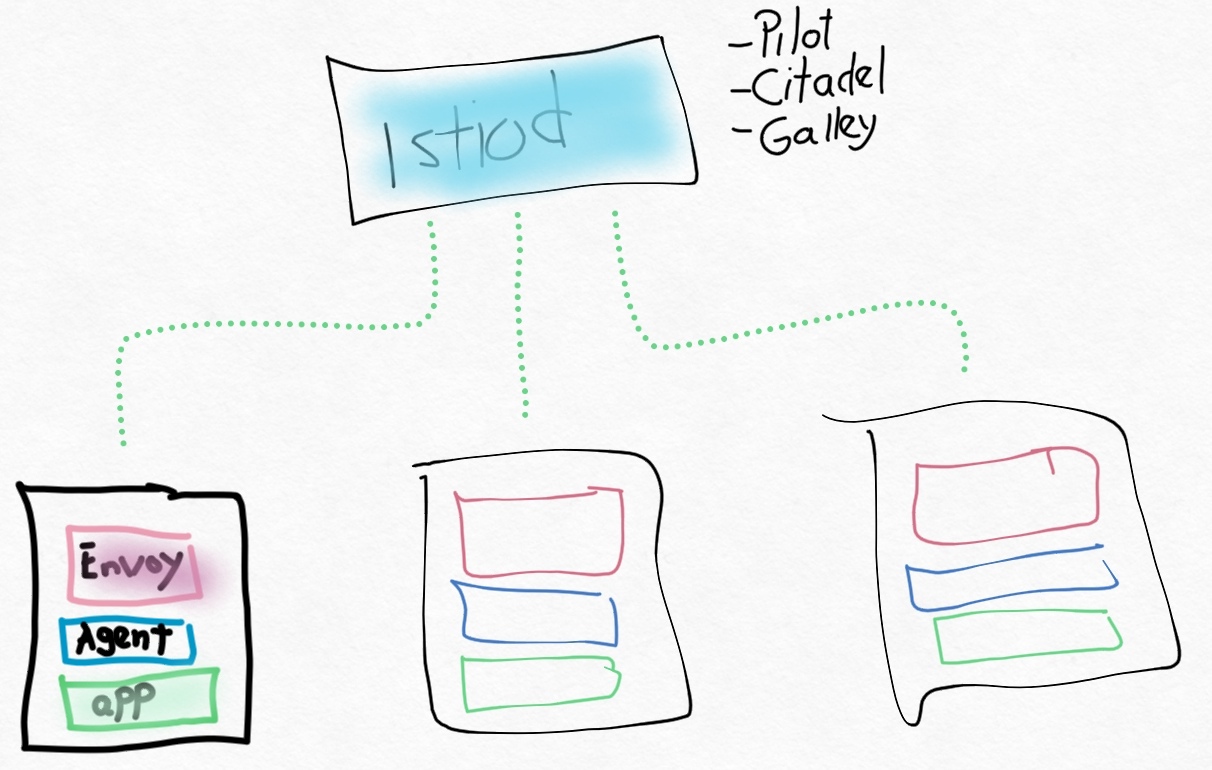 Istiod
-Pilot
-Citadel
-Galley
Envoy
Agent
app